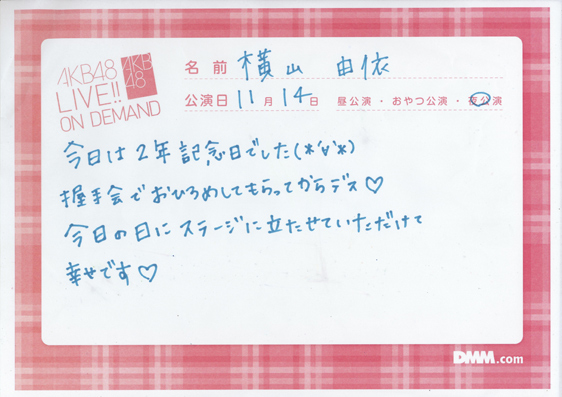 AKB48
LIVE!!
ON DEMAND
AKB
48
名前 横山 由依
公演日 11月14日 昼公演・おやつ公演・夜公演
今日は2年記念日でした(*'v'*)
握手会でおひろめしてもらってからデス♡
今日の日にステージに立たせていただけて
幸せです♡
DMM.com